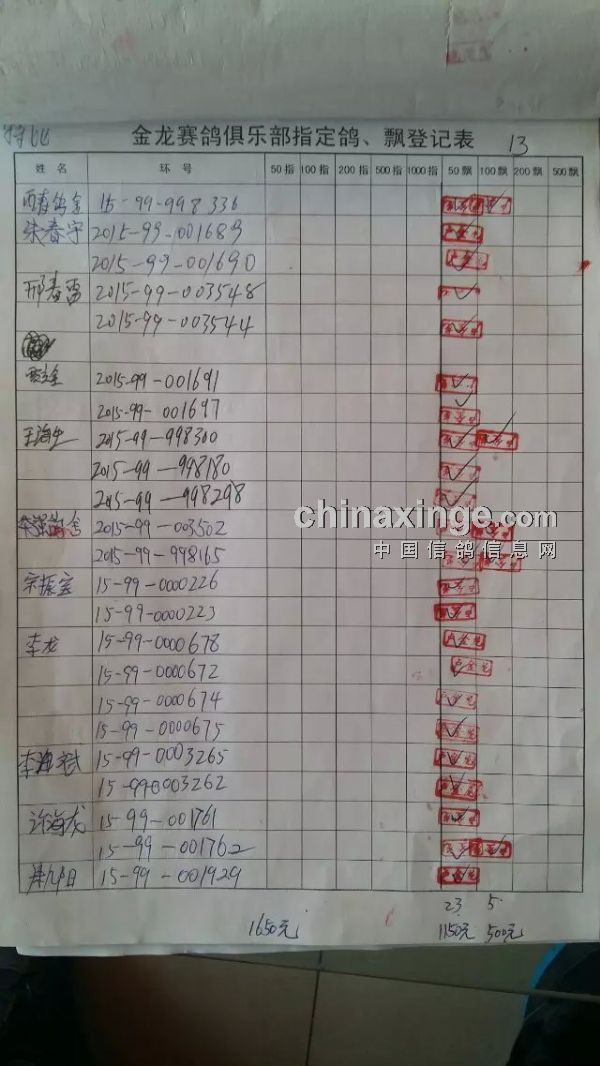 金龙赛鸽俱乐部指定鸽、飘登记表 13
姓名 环号 50指 100指 200指 500指 1000指 50飘 100飘 200飘 500飘
15-99-998336
朱春宇 2015-99-001689
2015-99-001690
邢春雷 2015-99-003548
2015-99-003544
2015-99-001691
2015-99-001697
王海生 2015-99-998300
2015-99-998180
2015-99-998298
2015-99-003502
2015-99-998165
宋振宝 15-99-0000226
15-99-0000223
李龙 15-99-0000678
15-99-0000672
15-99-0000674
15-99-0000675
15-99-0003265
15-990003262
许海龙 15-99-001761
15-99-001762
15-99-001929
23 5
1650元 1150元 500元
chinaxinge.com
中国信鸽信息网